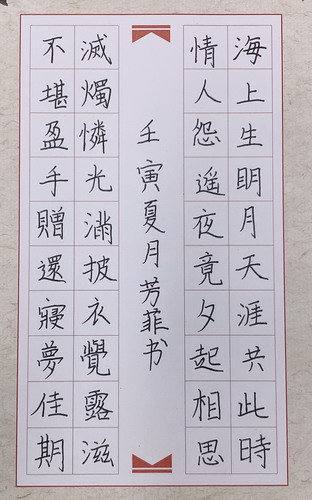 海上生明月天涯共此時
情人怨遥夜竟夕起相思
壬寅夏月芳菲书
滅燭憐光滿披衣覺露滋
不堪盈手贈還寢夢佳期